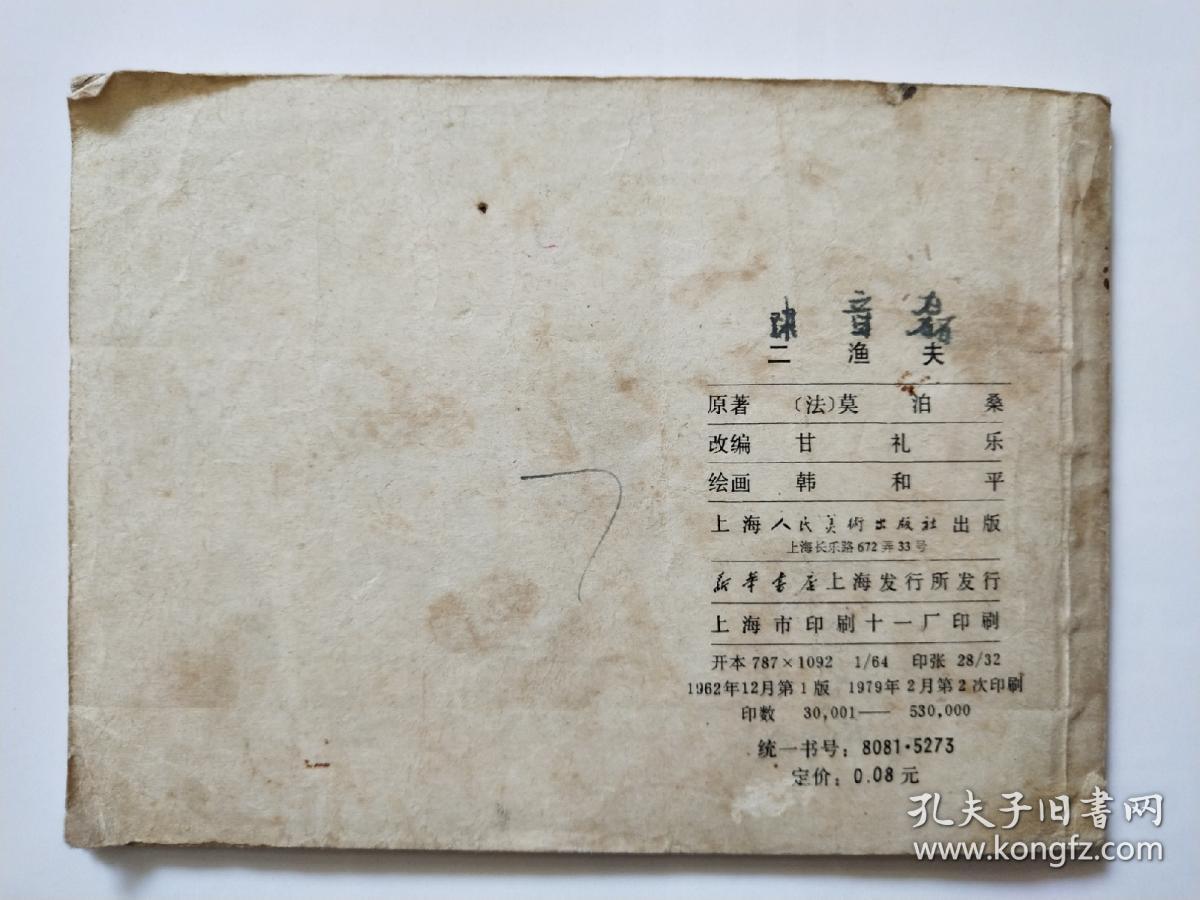 二渔夫
原著 〔法〕莫泊桑
改编 甘礼乐
绘画 韩和平
上海人民美術出版社出版
上海长乐路672弄33号
新华书店上海发行所发行
上海市印刷十一厂印刷
开本 787×1092 1/64 印张 28/32
1962年12月第1版 1979年2月第2次印刷
印数 30,001—530,000
统一书号：8081·5273
定价：0.08元
孔夫子旧书网
www.kongfz.com